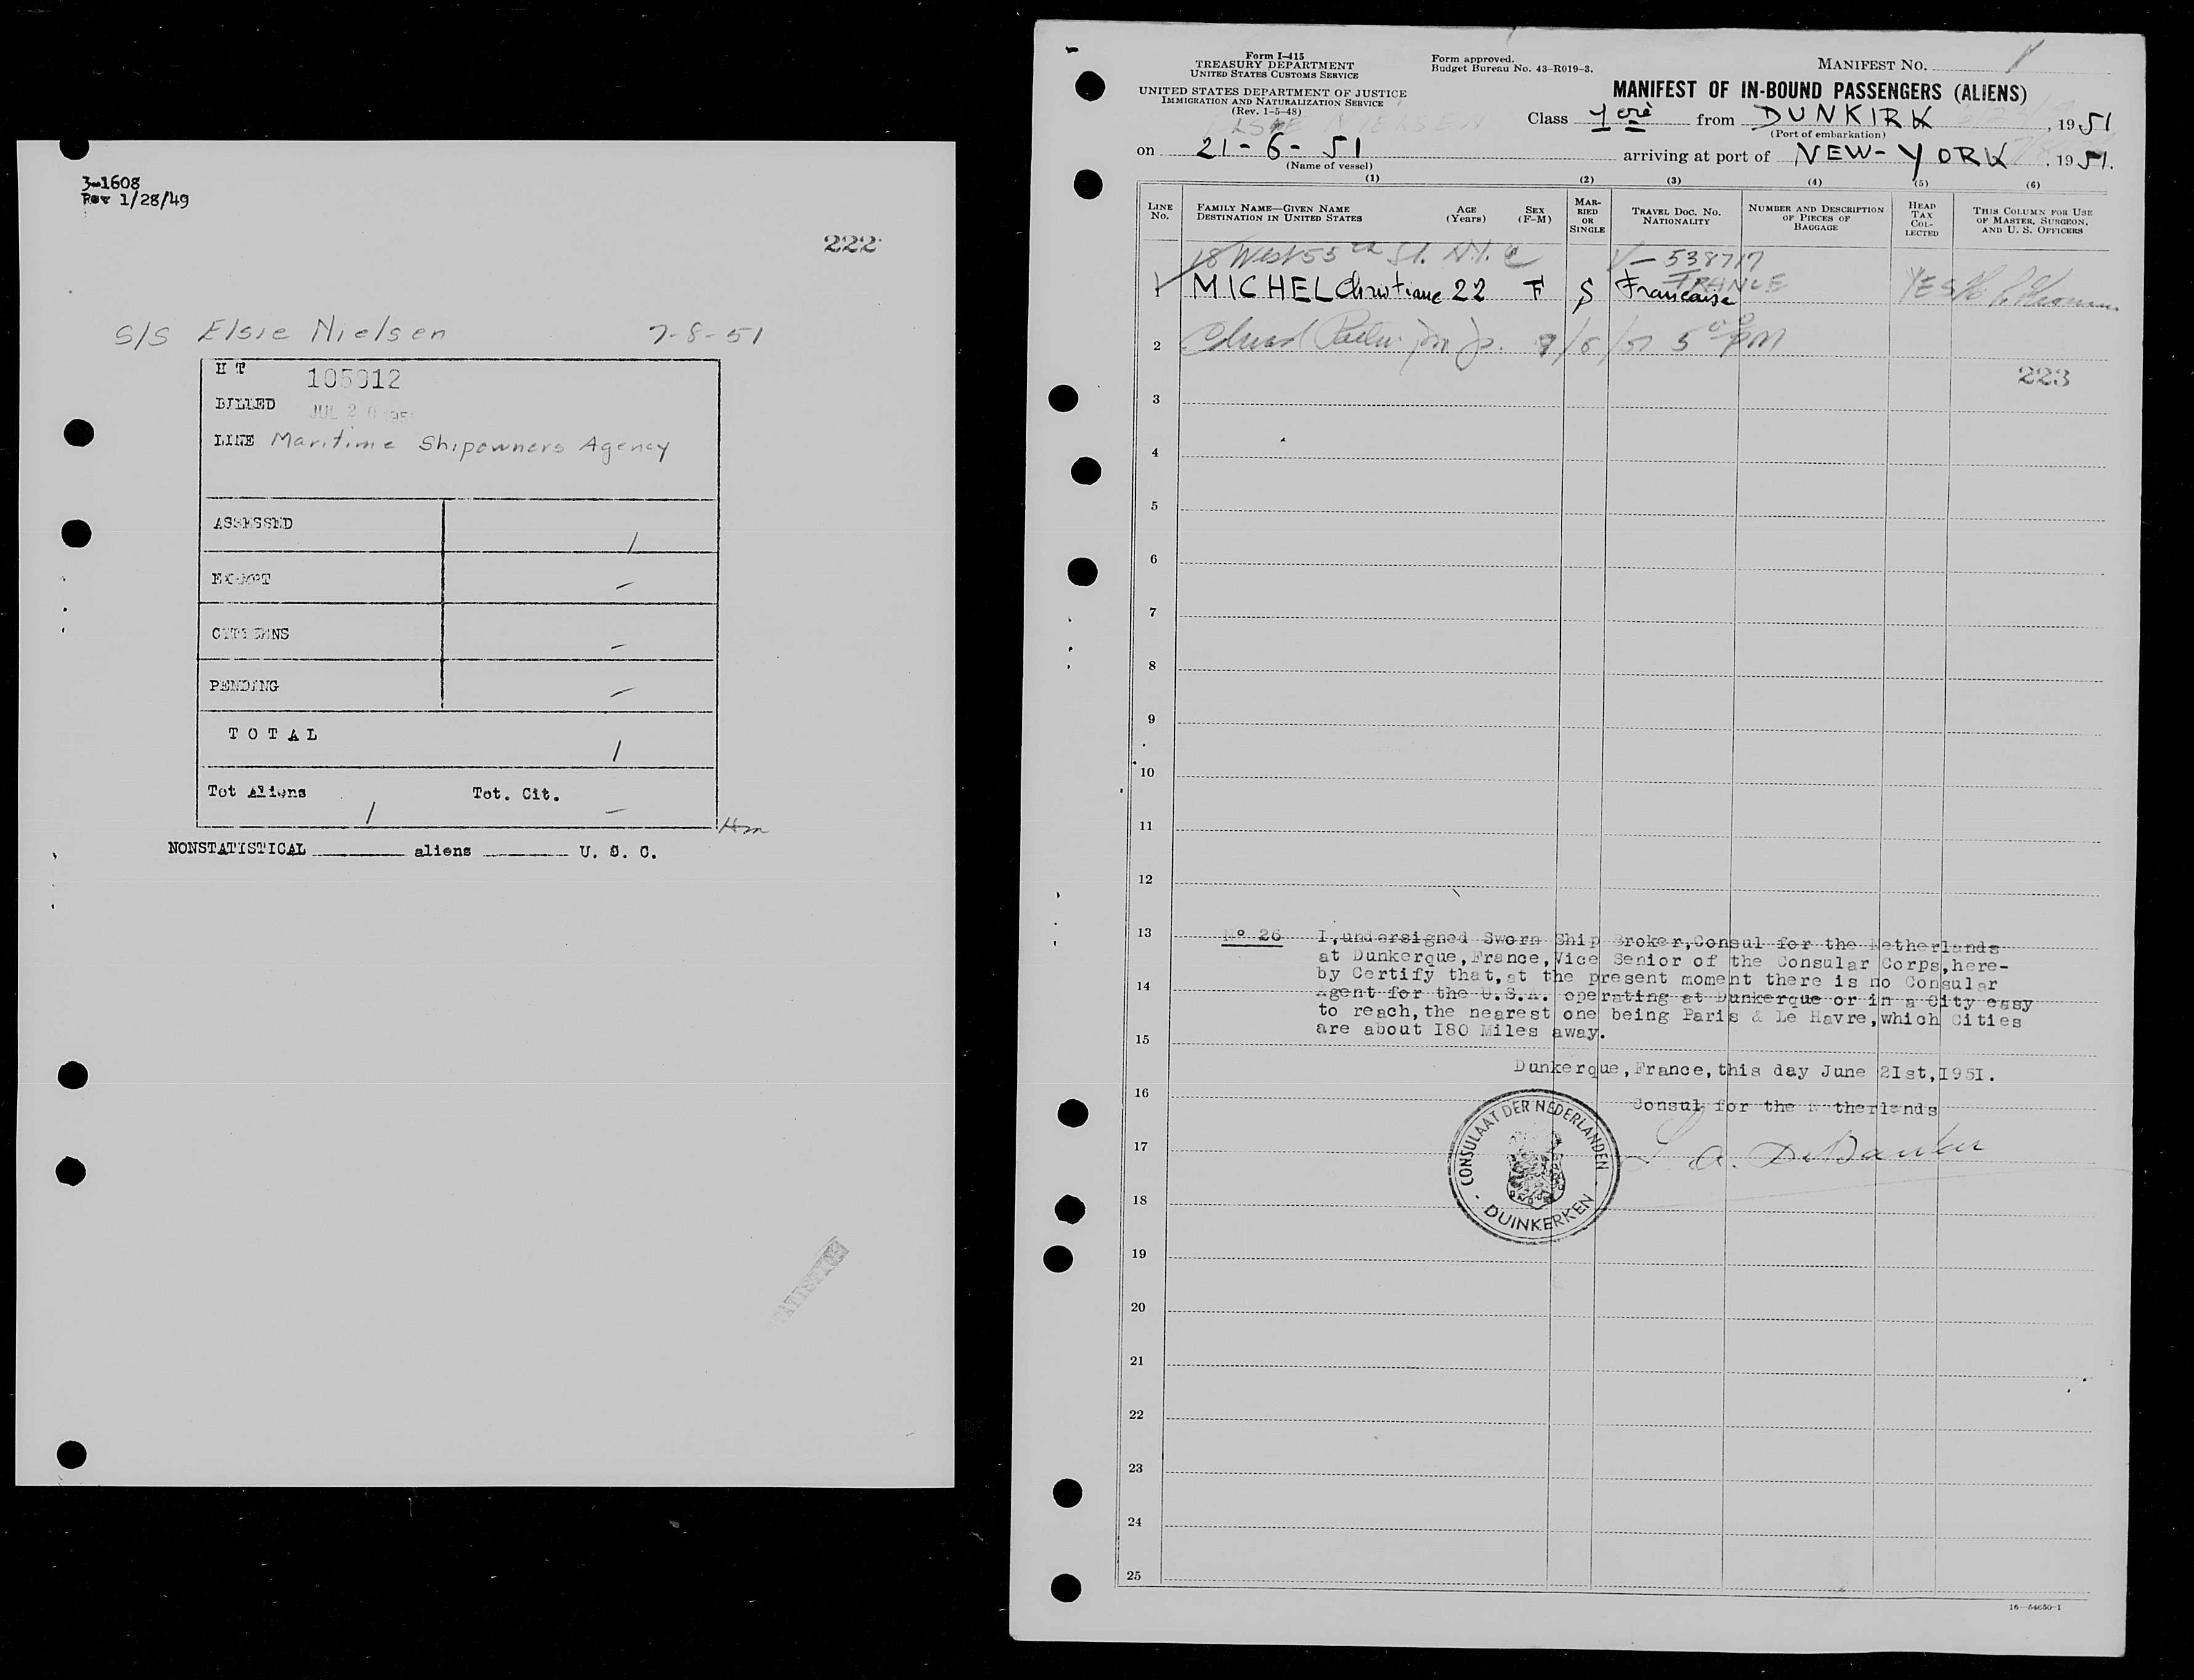 3-1608
Rev 1/28/49
222
S/S Elsie Nielsen 7-8-51
H T 105912
BILLED JUL 20 195
LINE Maritime Shipowners Agency
ASSESSED /
EXEMPT -
CITIZENS -
PENDING -
TOTAL /
Tot Aliens Tot. Cit.
/ -
Hm
NONSTATISTICAL aliens U. S. C.
Form I-415
TREASURY DEPARTMENT
UNITED STATES CUSTOMS SERVICE
UNITED STATES DEPARTMENT OF JUSTICE
IMMIGRATION AND NATURALIZATION SERVICE
(Rev. 1-5-48)
Form approved.
Budget Bureau No. 43-R019-3.
MANIFEST NO. 1
MANIFEST OF IN-BOUND PASSENGERS (ALIENS)
Class 1 ere from DUNKIRK, 1951
(Port of embarkation)
ELSIE NIELSEN
on 21-6-51 arriving at port of NEW-YORK, 1951.
(Name of vessel)
(1) (2) (3) (4) (5) (6)
LINE No.
FAMILY NAME—GIVEN NAME
DESTINATION IN UNITED STATES
AGE (Years)
SEX (F-M)
MARRIED OR SINGLE
TRAVEL DOC. NO. NATIONALITY
NUMBER AND DESCRIPTION OF PIECES OF BAGGAGE
HEAD TAX COLLECTED
THIS COLUMN FOR USE OF MASTER, SURGEON, AND U. S. OFFICERS
18 West 55th St. N.Y. C V-538717
1 MICHEL Christiane 22 F S Francaise FRANCE YES
2 7/8/51 5 00 PM
223
3
4
5
6
7
8
9
10
11
12
13 No 26 I,undersigned Sworn Ship Broker,Consul for the Netherlands
at Dunkerque,France,Vice Senior of the Consular Corps,here-
by Certify that,at the present moment there is no Consular
14 Agent for the U.S.A. operating at Dunkerque or in a City easy
to reach,the nearest one being Paris & Le Havre,which Cities
are about I80 Miles away.
15
Dunkerque,France,this day June 2Ist,I95I.
16 Consul for the Netherlands
17
CONSULAAT DER NEDERLANDEN
DUINKERKEN
18
19
20
21
22
23
24
25
16-54650-1